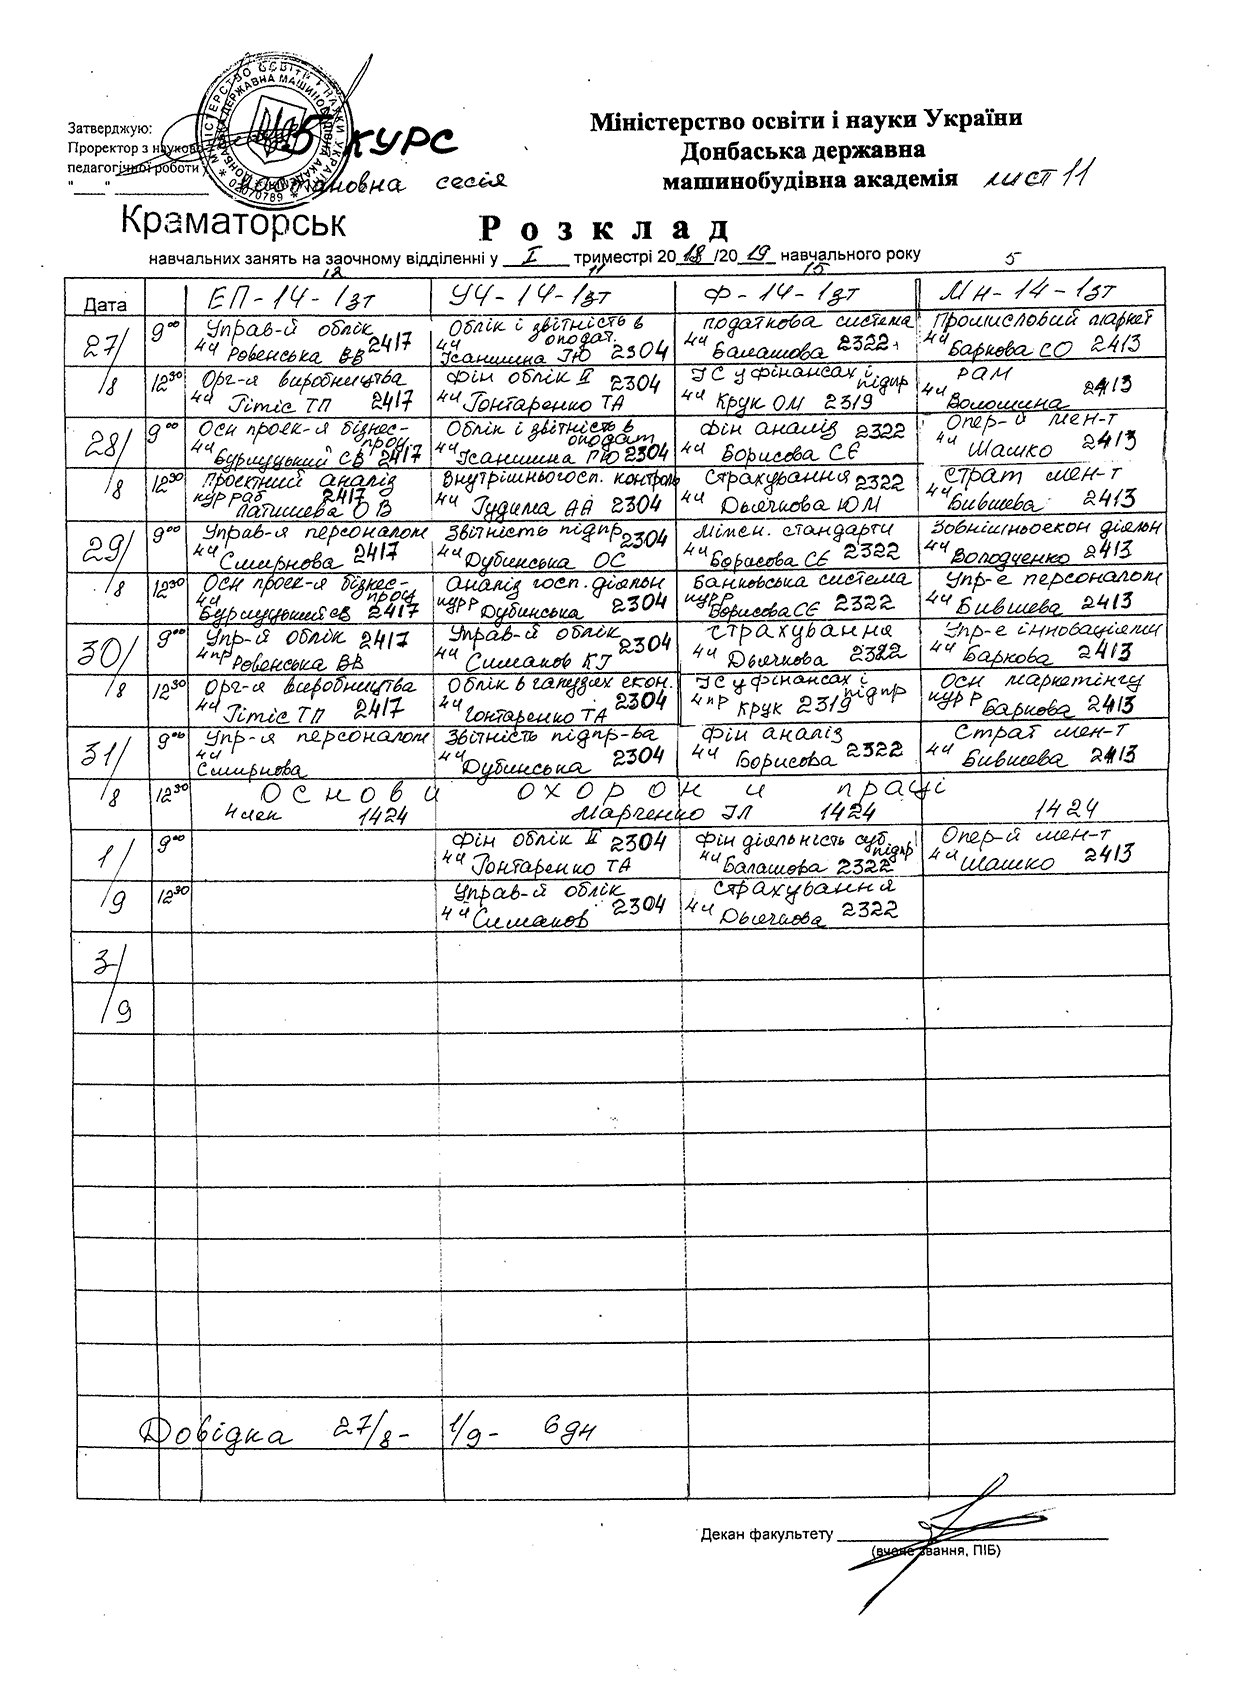 Затверджую:
Проректор з науково-
педагогічної роботи
5 КУРС
Настановна сесія
Міністерство освіти і науки України
Донбаська державна
машинобудівна академія лист 11
Краматорськ
Розклад
навчальних занять на заочному відділенні у I триместрі 2018/2019 навчального року
12 11 15 5
Дата ЕП-14-1зт УЧ-14-1зт Ф-14-1зт МН-14-1зт
27/8 9⁰⁰
Управ-й облік 4ч Ровенська ВВ 2417
Облік і звітність в оподат. 4ч Ісаншина ГЮ 2304
податкова система 4ч Балашова 2322
Промисловий маркет 4ч Баркова СО 2413
12³⁰
Орг-я виробництва 4ч Гітіс ТП 2417
Фін облік II 2304 4ч Гонтаренко ТА
ІС у фінансах і підпр 4ч Крук ОМ 2319
РАМ 4ч Волошина 2413
28/8 9⁰⁰
Осн проек-я бізнес-проц. 4ч Бурлуцький СВ 2417
Облік і звітність в оподат 4ч Ісаншина ГЮ 2304
Фін аналіз 2322 4ч Борисова СЄ
Опер-й мен-т 4ч Шашко 2413
12³⁰
Проектний аналіз кур раб 2417 Латишева О В
Внутрішньогосп. контроль 4ч Гудима АА 2304
Страхування 2322 4ч Дьячкова ЮМ
Страт мен-т 4ч Бившева 2413
29/8 9⁰⁰
Управ-я персоналом 4ч Смирнова 2417
Звітність підпр 2304 4ч Дубинська ОС
Міжн. стандарти 4ч Борисова СЄ 2322
Зовнішньоекон діяльн 4ч Володченко 2413
12³⁰
Осн проек-я бізнес-проц 4ч Бурлуцький СВ 2417
Аналіз госп. діяльн курр Дубинська 2304
Банковська система курр Борисова СЄ 2322
Упр-е персоналом 4ч Бившева 2413
30/8 9⁰⁰
Упр-й облік 2417 4пр Ровенська ВВ
Управ-й облік 4ч Симаков КІ 2304
Страхування 4ч Дьячкова 2322
Упр-е інноваціями 4ч Баркова 2413
12³⁰
Орг-я виробництва 4ч Гітіс ТП 2417
Облік в галузях екон. 4ч Гонтаренко ТА 2304
ІС у фінансах і підпр 4пр Крук 2319
Осн маркетингу кур Р Баркова 2413
31/8 9⁰⁰
Упр-я персоналом 4ч Смирнова
Звітність підпр-ва 4ч Дубинська 2304
Фін аналіз 4ч Борисова 2322
Страт мен-т 4ч Бившева 2413
12³⁰
Основи охорони праці
4лек 1424 Марченко ІЛ 1424 1424
1/9 9⁰⁰
Фін облік II 2304 4ч Гонтаренко ТА
Фін діяльність суб. підпр 4ч Балашова 2322
Опер-й мен-т 4ч Шашко 2413
12³⁰
Управ-й облік 4ч Симаков 2304
Страхування 4ч Дьячкова 2322
3/9
Довідка 27/8- 1/9- 6дн
Декан факультету
(вчене звання, ПІБ)